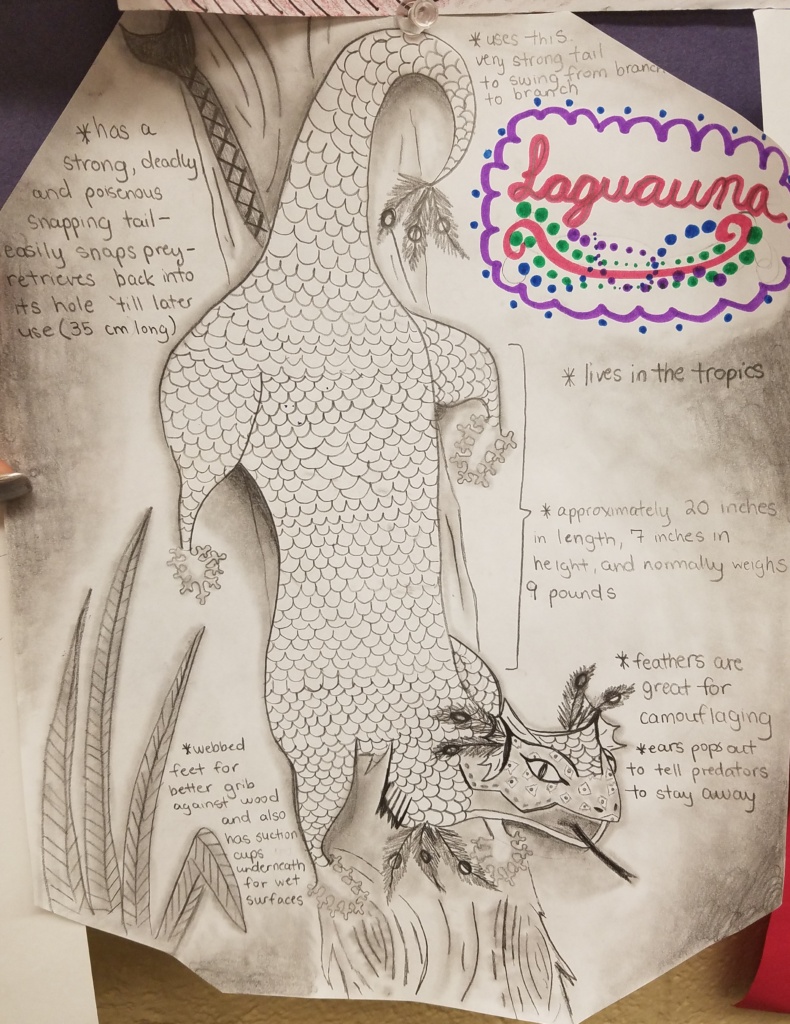 *uses this
very strong tail
to swing from branch
to branch
Laguauna
*has a
strong, deadly
and poisenous
snapping tail-
easily snaps prey-
retrieves back into
its hole 'till later
use (35 cm long)
*lives in the tropics
*approximately 20 inches
in length, 7 inches in
height, and normally weighs
9 pounds
*feathers are
great for
camouflaging
*ears pops out
to tell predators
to stay away
*webbed
feet for
better grib
against wood
and also
has suction
cups
underneath
for wet
surfaces